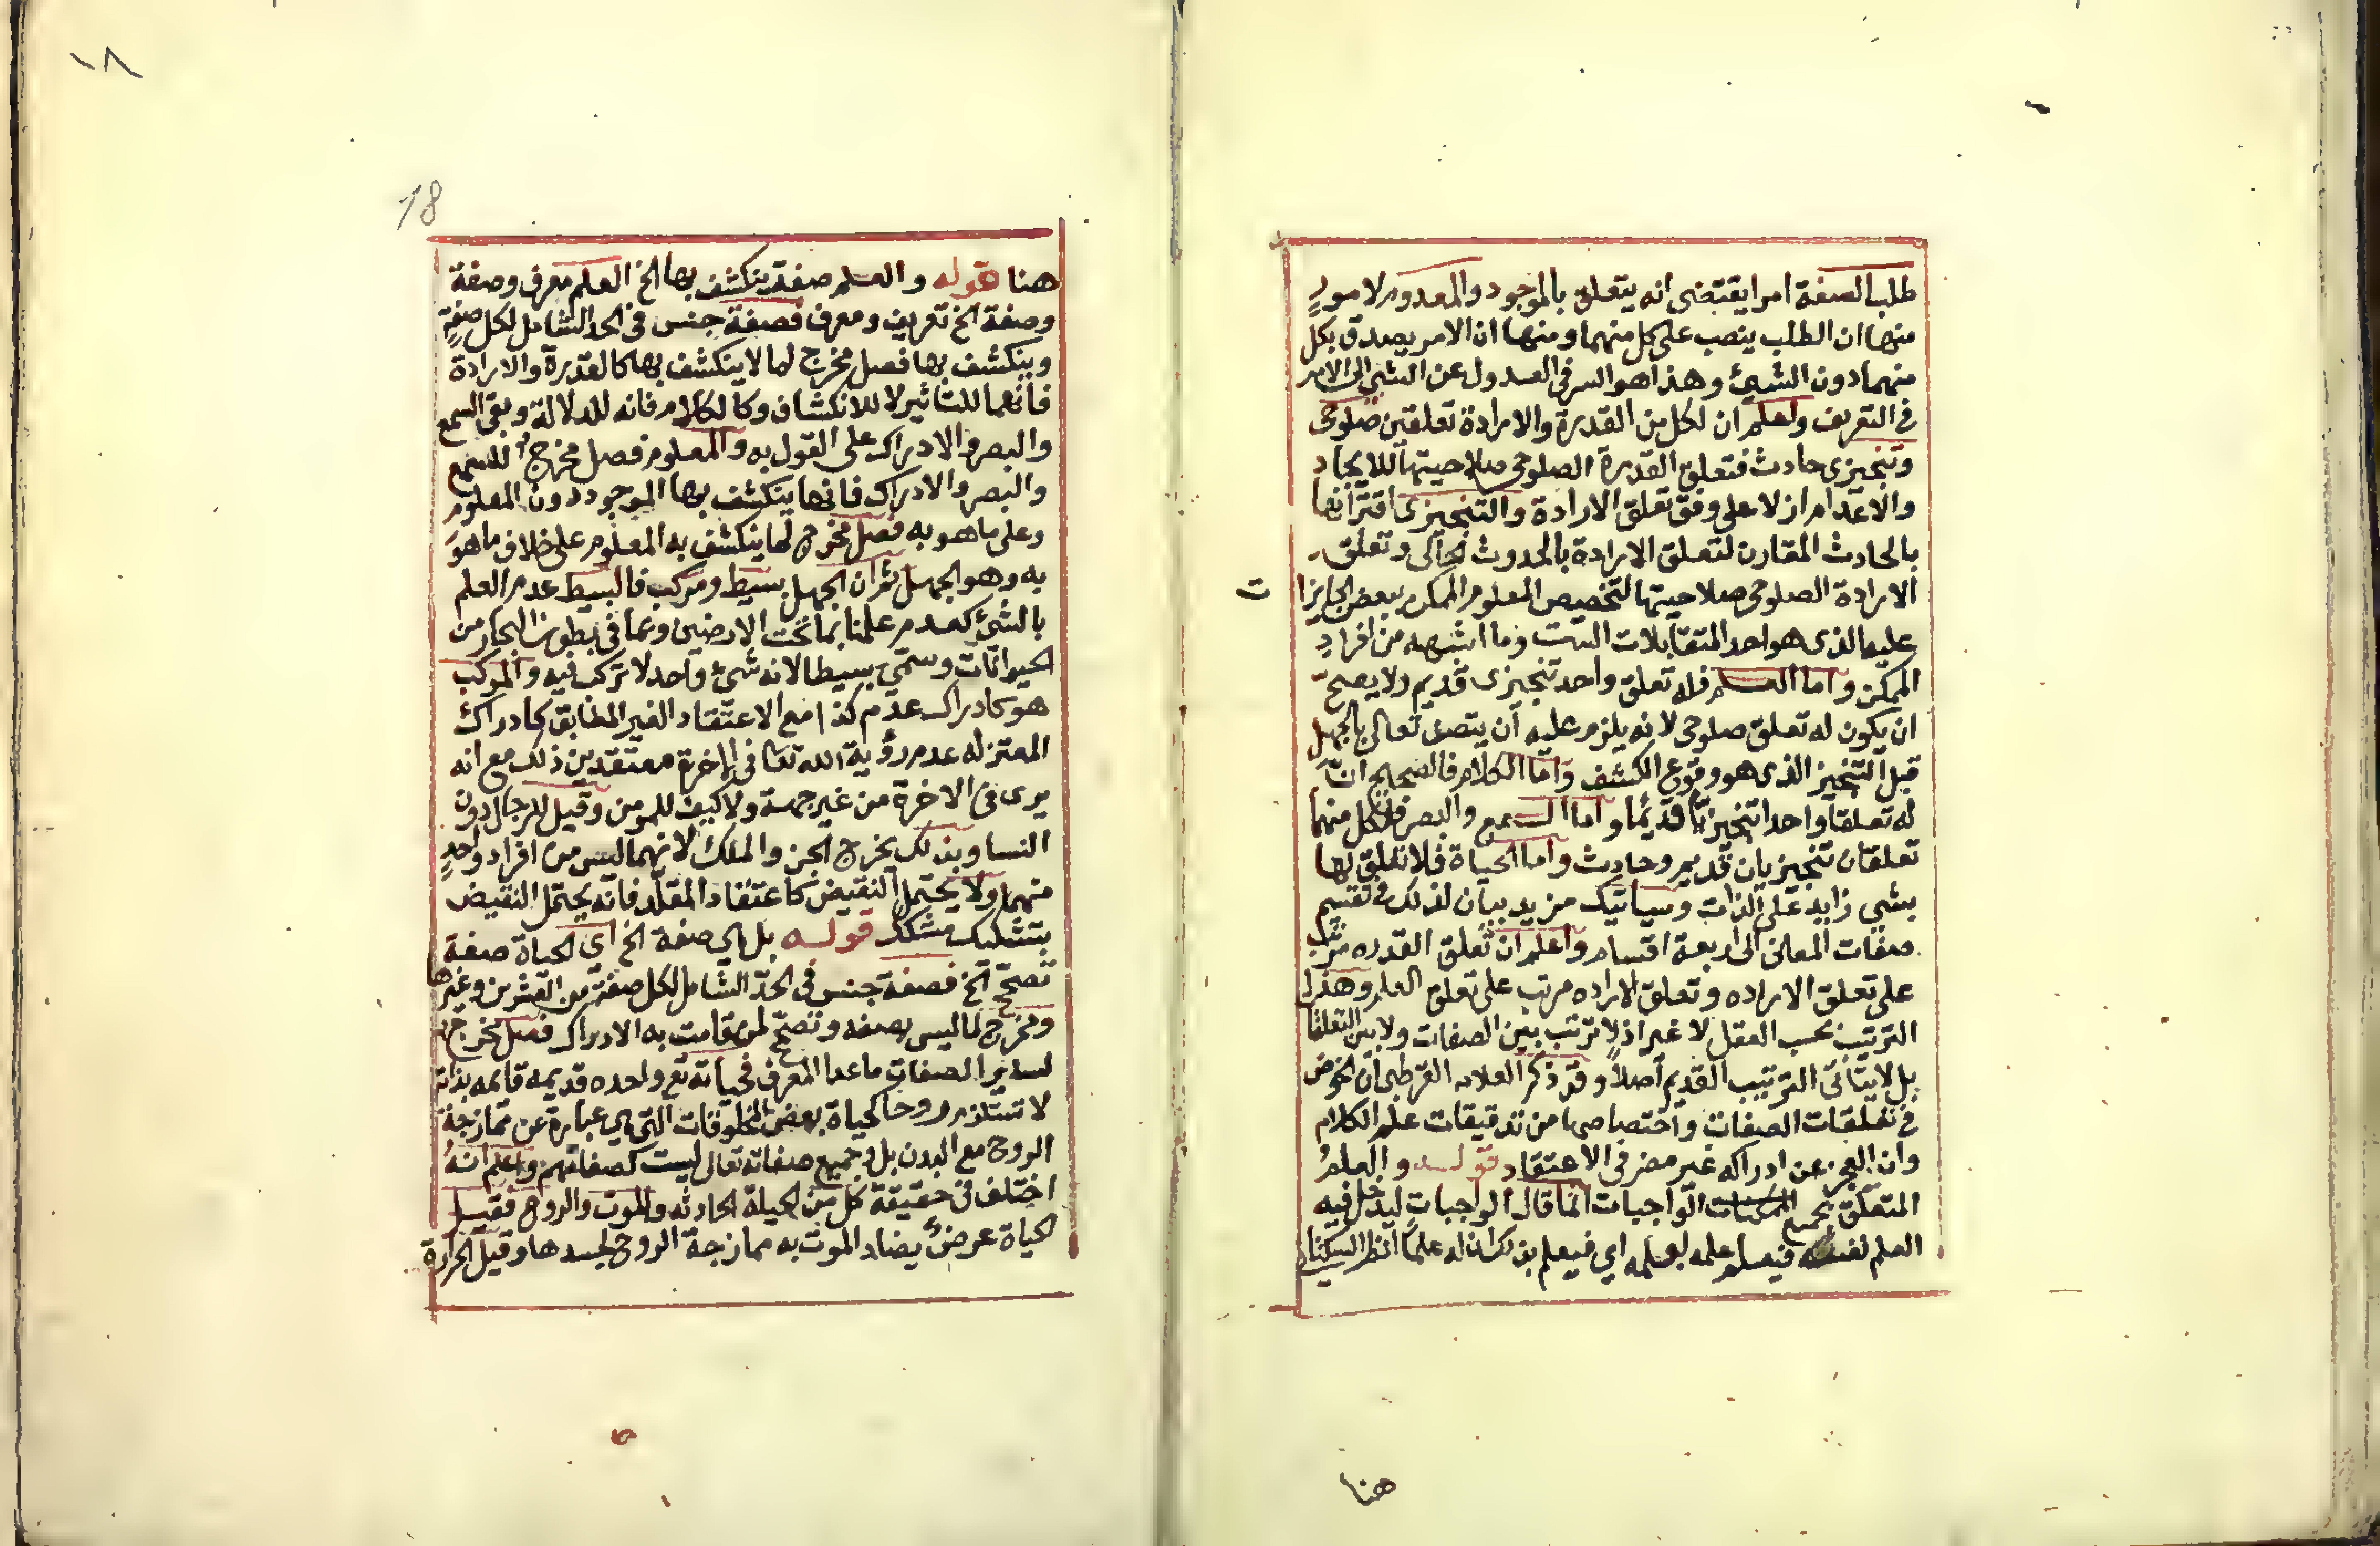 طلب الصفة امرا يقتضى انه يتعلق بالموجود والمعدوم لامور
منها ان الطلب ينصب على كل منهما ومنها ان الامر يصدق بكل
منهما دون الشيئ وهذا هو السر فى العدول عن الشيئ الى الامر
فى التعريف واعلم ان لكل من القدرة والارادة تعلقين صلوحى
وتنجيزى حادث فتعلق القدرة الصلوحى صلاحيتها للايجاد
والاعدام ازلا على وفق تعلق الارادة والتنجيزى اقترانها
بالحادث المقارن لتعلق الارادة بالحدوث الحالى وتعلق
الارادة الصلوحى صلاحيتها لتخصيص المعلوم الممكن ببعض الجايزات
عليه الذى هو احد المتقابلات الست وما اشبهه من افراد
الممكن واما العلم فله تعلق واحد تنجيزى قديم ولا يصح
ان يكون له تعلق صلوحى لانه يلزم عليه ان يتصف تعالى بالجهل
قبل التنجيز الذى هو وقوع الكشف واما الكلام فالصحيح ان
له تعلقا واحدا تنجيزيا قديما واما السمع والبصر فلكل منهما
تعلقان تنجيزيان قديم وحادث واما الحياة فلا تعلق لها
بشي زايد على الذات وسياتيك مزيد بيان لذلك فى تقسيم
صفات المعانى الى اربعة اقسام واعلم ان تعلق القدره مرتب
على تعلق الاراده وتعلق الاراده مرتب على تعلق العلم وهذا
الترتيب بحسب العقل لا غير اذ لا ترتب بين الصفات ولا بين التعلقا
بل لا يتاتى الترتيب القديم اصلا وقد ذكر العلامه القرطبى ان الخوض
فى تعلقات الصفات واختصاصها من تدقيقات علم الكلام
وان العجز عن ادراكه غير مضر فى الاعتقاد قوله والعلم
المتعلق بجميع الواجبات انما قال الواجبات ليدخل فيه
العلم نفسه فيعلم علمه بعلمه اي فيعلم بذلك ان له علما انظر السكتانى
هنا
١٨
18
هنا قوله والعلم صفة ينكشف بها الخ العلم معرف وصفة
وصفة الخ تعريف ومعرف فصفة جنس فى الحد الشامل لكل صفة
وينكشف بها فصل مخرج لما لا ينكشف بها كالقدرة والارادة
فانهما للتاثير لا للانكشاف وكالكلام فانه للدلالة وبقى السمع
والبصر والادراك على القول به والمعلوم فصل مخرج للسمع
والبصر والادراك فانها ينكشف بها الموجود دون المعلوم
وعلى ما هو به فصل مخرج لما ينكشف به المعلوم على خلاف ما هو
به وهو الجهل ثم ان الجهل بسيط ومركب فالبسيط عدم العلم
بالشيئ كعدم علمنا بما تحت الارضين وبما فى بطون البحار من
الحيوانات وسمى بسيطا لانه شيئ واحد لا تركب فيه والمركب
هو كادراك عدم كذا مع الاعتقاد الغير المطابق كادراك
المعتزله عدم رؤية الله تعا فى الاخرة معتقدين ذلك مع انه
يرى فى الاخرة من غير جهة ولا كيف للمومن وقيل للرجال دون
النسا وبذلك يخرج الجن والملك لانهما ليس من افراد واحد
منهما ولا يحتمل النقيض كاعتقاد المقلد فانه يحتمل النقيض
بتشكيك مشكك قوله بل هى صفة الخ اى الحياة صفة
تصحح الخ فصفة جنس فى الحد الشامل لكل صفة من العشرين وغيرها
ومخرج لما ليس بصفه وتصحح لمن قامت به الادراك فصل مخرج
لساير الصفات ماعدا المعرف فحياته تع واحده قديمه قايمه بذاته
لا تستلزم روحا كحياة بعض المخلوقات التى هى عبارة عن ممازجة
الروح مع البدن بل وجميع صفاته تعالى ليست كصفاتهم واعلم انه
اختلف فى حقيقة كل من الحياة الحادثه والموت والروح فقيل
الحياة عرض يضاد الموت به ممازجة الروح لجسدها وقيل الحرارة